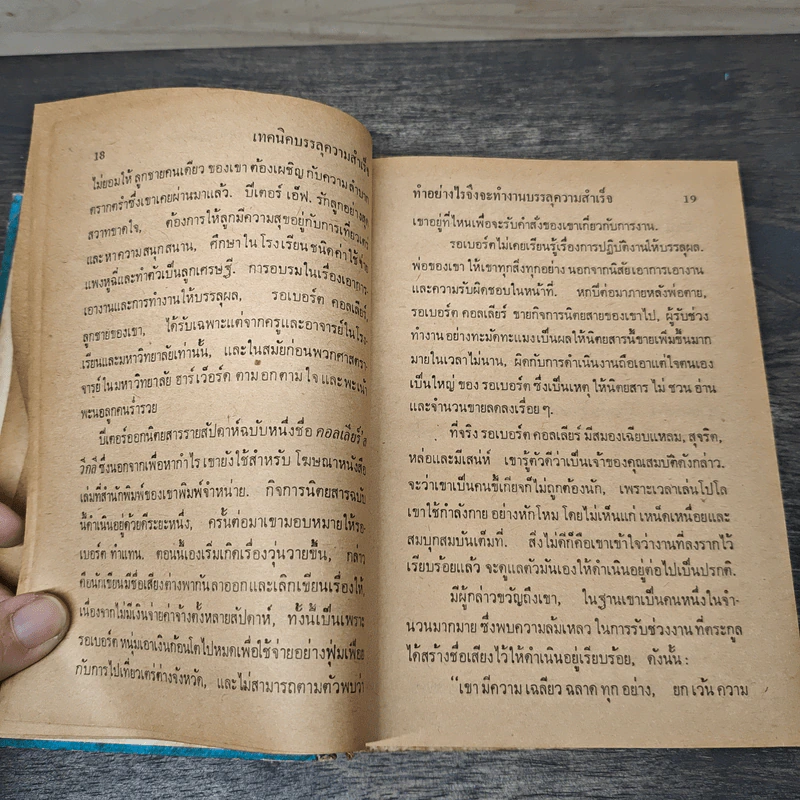 18
เทคนิคบรรลุความสำเร็จ
ไม่ยอมให้ ลูกชายคนเดียว ของเขา ต้องเผชิญ กับความ ลำบาก
ตรากตรำซึ่งเขาเคยผ่านมาแล้ว. ปีเตอร์ เอ็ฟ. รักลูกอย่างสุด
สวาทขาดใจ, ต้องการให้ลูกมีความสุขอยู่กับการเที่ยวเตร่
และหาความสนุกสนาน, ศึกษาใน โรงเรียน ชนิดค่าใช้จ่าย
แพงหูฉี่และทำตัวเป็นลูกเศรษฐี. การอบรมในเรื่องเอาการ
เอางานและการทำงานให้บรรลุผล, รอเบอร์ต คอลเลียร์,
ลูกชายของเขา, ได้รับเฉพาะแต่จากครูและอาจารย์ในโรง-
เรียนและมหาวิทยาลัยเท่านั้น, และในสมัยก่อนพวกศาสตรา-
จารย์ใน มหาวิทยาลัย ฮาร์เว็อร์ด ตาม อก ตาม ใจ และ พะเน้า
พะนอลูกคนร่ำรวย
ปีเตอร์ออกนิตยสารรายสัปดาห์ฉบับหนึ่งชื่อ คอลเลียร์'ส
วีกลี ซึ่งนอกจากเพื่อหากำไร เขายังใช้สำหรับ โฆษณาหนังสือ
เล่มที่สำนักพิมพ์ของเขาพิมพ์จำหน่าย. กิจการนิตยสารฉบับ
นี้ดำเนินอยู่ด้วยดีระยะหนึ่ง, ครั้นต่อมาเขามอบหมายให้รอ-
เบอร์ต ทำแทน. ตอนนี้เองเริ่มเกิดเรื่องวุ่นวายขึ้น, กล่าว
คือนักเขียนมีชื่อเสียงต่างพากันลาออกและเลิกเขียนเรื่องให้,
เนื่องจากไม่มีเงินจ่ายค่าจ้างตั้งหลายสัปดาห์, ทั้งนี้เป็นเพราะ
รอเบอร์ตหนุ่มเอาเงินก้อนโตไปหมดเพื่อใช้จ่ายอย่างฟุ่มเฟือย
กับการไปเที่ยวเตร่ต่างจังหวัด, และไม่สามารถตามตัวพบว่า
ทำอย่างไรจึงจะทำงานบรรลุความสำเร็จ
19
เขาอยู่ที่ไหนเพื่อจะรับคำสั่งของเขาเกี่ยวกับการงาน.
รอเบอร์ตไม่เคยเรียนรู้เรื่องการปฏิบัติงานให้บรรลุผล.
พ่อของเขา ให้เขาทุกสิ่งทุกอย่าง นอกจากนิสัยเอาการเอางาน
และความรับผิดชอบในหน้าที่. หกปีต่อมาภายหลังพ่อตาย,
รอเบอร์ต คอลเลียร์ ขายกิจการนิตยสายของเขาไป. ผู้รับช่วง
ทำงาน อย่างทะมัดทะแมงเป็นผลให้นิตยสารนี้ขายเพิ่มขึ้นมาก
มายในเวลาไม่นาน, ผิดกับการดำเนินงานถือเอาแต่ใจตนเอง
เป็นใหญ่ ของ รอเบอร์ต ซึ่งเป็นเหตุ ให้นิตยสาร ไม่ ชวน อ่าน
และจำนวนขายลดลงเรื่อย ๆ.
ที่จริง รอเบอร์ต คอลเลียร์ มีสมองเฉียบแหลม, สุจริต,
หล่อและมีเสน่ห์ เขารู้ตัวดีว่าเป็นเจ้าของคุณสมบัติดังกล่าว.
จะว่าเขาเป็นคนขี้เกียจก็ไม่ถูกต้องนัก, เพราะเวลาเล่นโปโล
เขาใช้กำลังกาย อย่างหักโหม โดยไม่เห็นแก่ เหน็ดเหนื่อยและ
สมบุกสมบันเต็มที่. สิ่งไม่ดีก็คือเขาเข้าใจว่างานที่ลงรากไว้
เรียบร้อยแล้ว จะดูแลตัวมันเองให้ดำเนินอยู่ต่อไปเป็นปรกติ.
มีผู้กล่าวขวัญถึงเขา, ในฐานเขาเป็นคนหนึ่งในจำ-
นวนมากมาย ซึ่งพบความล้มเหลว ในการรับช่วงงาน ที่ตระกูล
ได้สร้างชื่อเสียงไว้ให้ดำเนินอยู่เรียบร้อย, ดังนั้น :
“เขา มีความ เฉลียว ฉลาด ทุก อย่าง, ยก เว้น ความ